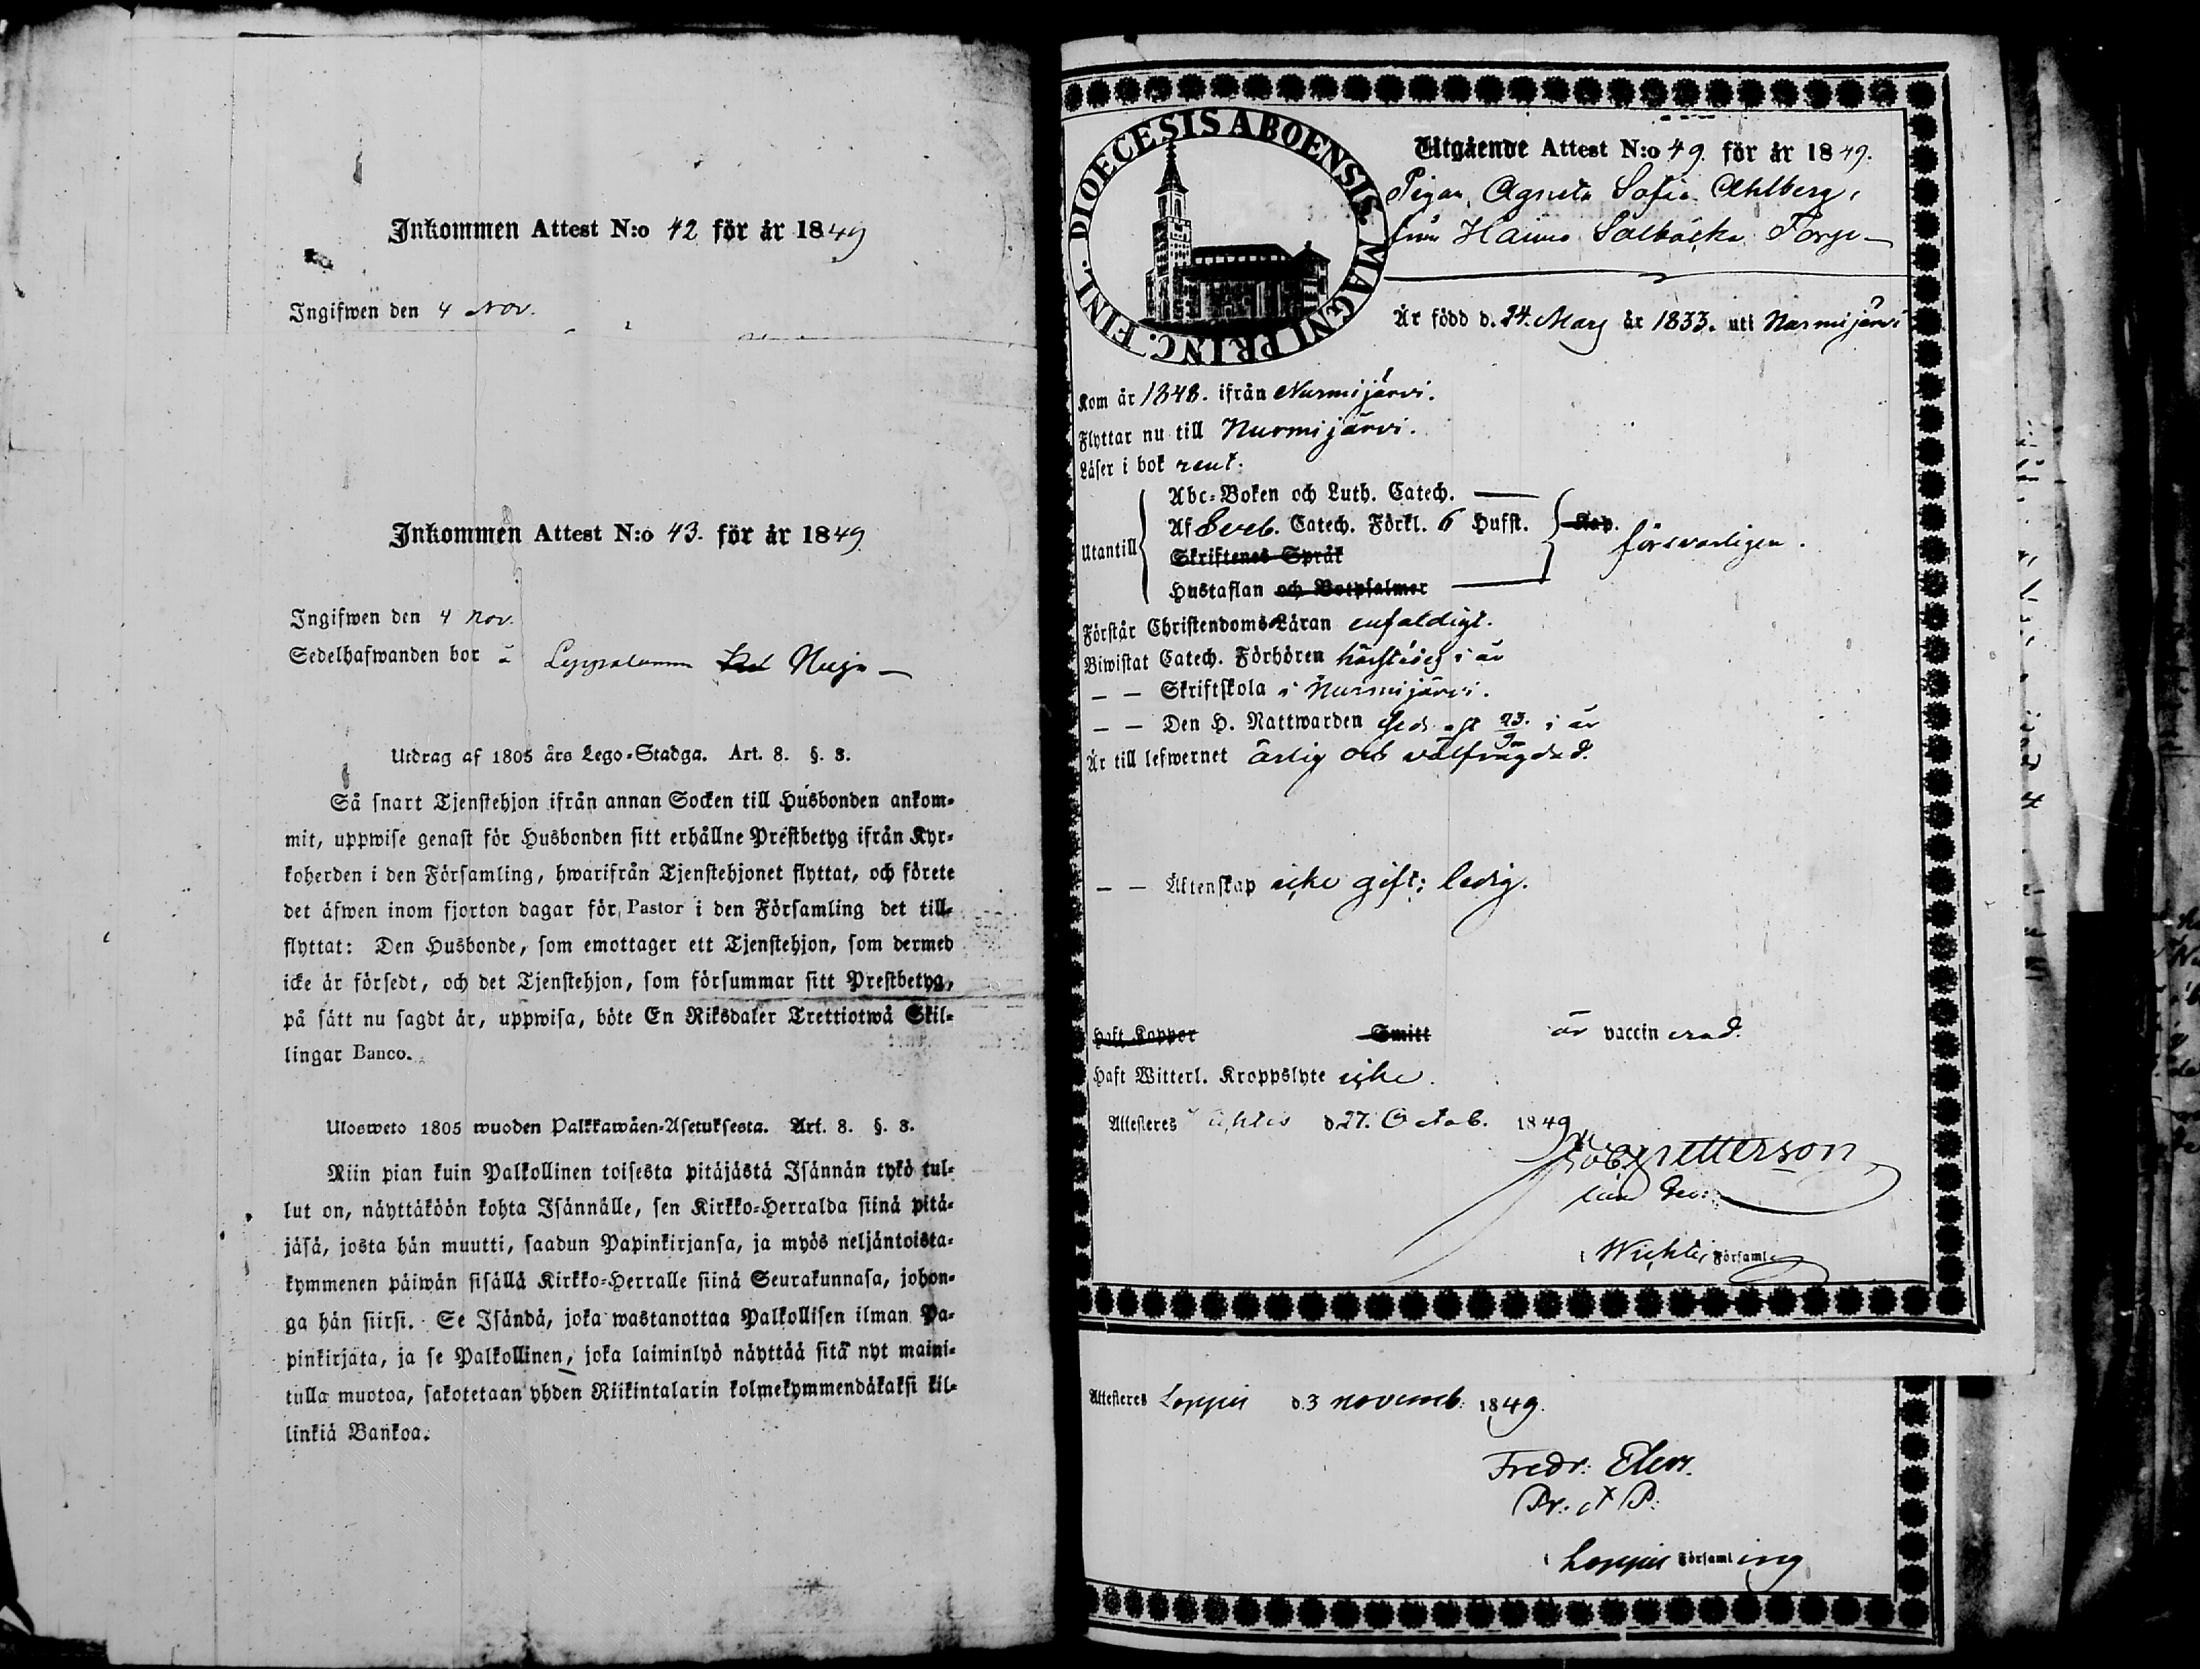 Inkommen Attest N:o 42 för år 1849
Ingifwen den 4 Nov.
Inkommen Attest N:o 43. för år 1849.
Ingifwen den 4 Nov.
Sedelhafwanden bor å
Utdrag af 1805 års Lego-Stadga. Art. 8. §. 3.
Så snart Tjenstehjon ifrån annan Socken till Husbonden ankom-
mit, uppwise genast för Husbonden sitt erhållne Prestbetyg ifrån Kyr-
koherden i den Församling, hwarifrån Tjenstehjonet flyttat, och förete
det äfwen inom fjorton dagar för Pastor i den Församling det till-
flyttat: Den Husbonde, som emottager ett Tjenstehjon, som dermed
icke är försedt, och det Tjenstehjon, som försummar sitt Prestbetyg,
på sätt nu sagdt är, uppwisa, böte En Riksdaler Trettiotwå Skil-
lingar Banco.
Ulosweto 1805 wuoden Palkkawäen-Asetuksesta. Art. 8. §. 3.
Niin pian kuin Palkollinen toisesta pitäjästä Isännän tykö tul-
lut on, näyttäköön kohta Isännälle, sen Kirkko-Herralda siinä pitä-
jäsä, josta hän muutti, saadun Papinkirjansa, ja myös neljäntoista-
kymmenen päiwän sisällä Kirkko-Herralle siinä Seurakunnasa, johon-
ga hän siirsi. Se Isändä, joka wastanottaa Palkollisen ilman Pa-
pinkirjata, ja se Palkollinen, joka laiminlyö näyttää sitä nyt maini-
tulla muotoa, sakotetaan yhden Riikintalarin kolmekymmendäkaksi kil-
linkiä Bankoa.
DIOECESIS ABOENSIS. MAGNI PRINC. FINL.
Utgående Attest N:o 49. för år 1849.
Pigan, Agneta Sofia Ahlberg,
från Haimo Salbacka Torp
Är född d. 24. Mars år 1833. uti Nurmijärvi
Kom år 1848. ifrån Nurmijärvi.
Flyttar nu till Nurmijärvi.
Läser i bok rent.
Utantill
Abc-Boken och Luth. Catech.
Af Sveb. Catech. Förkl. 6 Hufst. Kap. försvarligen.
Skriftenes Språk
Hustaflan och Botpsalmer
Förstår Christendoms Läran enfaldigt.
Biwistat Catech. Förhören i år
— — Skriftskola i Nurmijärvi.
— — Den H. Nattwarden 23. i år
Är till lefwernet ärlig och välfrägdad.
— — Äktenskap icke gift; ledig.
Haft Koppor Smitt är vaccinerad.
Haft Witterl. Kroppslyte icke.
Attesteres d. 27. Octob. 1849
Petterson
i Wichtis Församl.
Attesteres Loppis d. 3 novemb. 1849.
Fredr.
i Loppis Församling